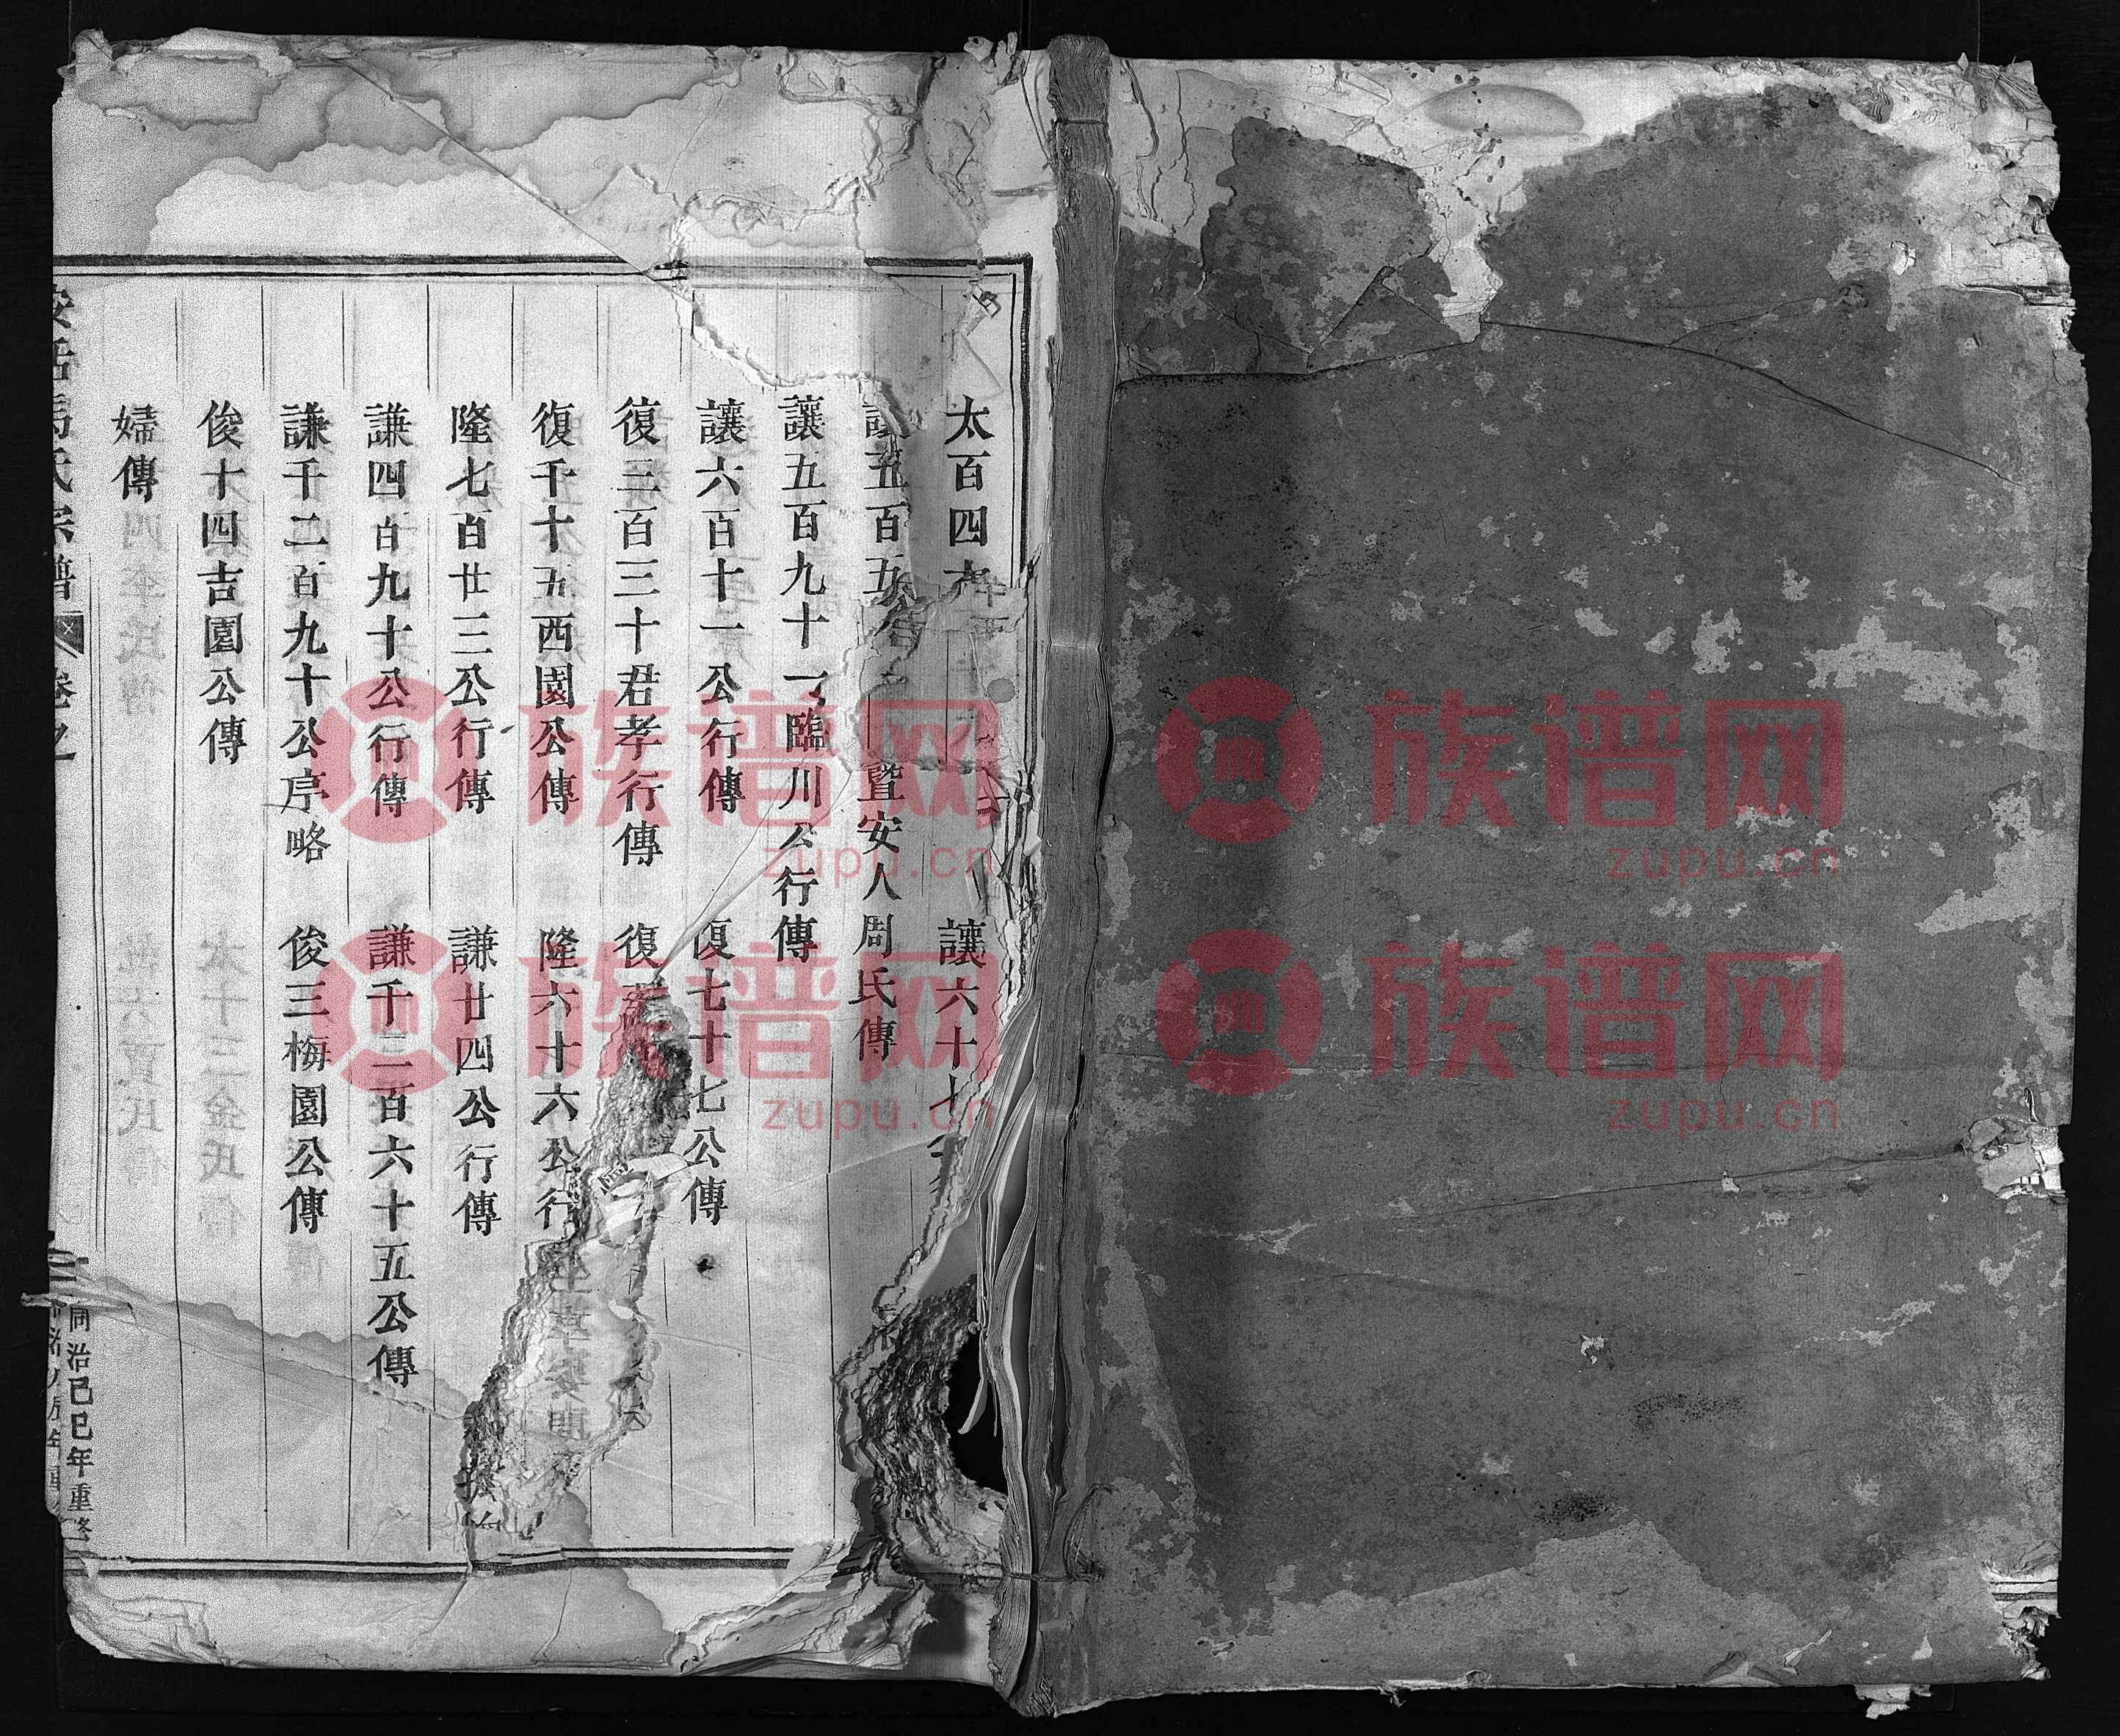 太百四
讓六十七
讓五百五
暨安人周氏傳
讓五百九十一臨川公行傳
讓六百十一公行傳
復七十七公傳
復三百三十君孝行傳
復
復千十五西園公傳
隆六十六公行
隆七百廿三公行傳
謙廿四公行傳
謙四百九十公行傳
謙千三百六十五公傳
謙千二百九十公序略
俊三梅園公傳
俊十四吉園公傳
婦傳
氏宗譜
卷之
同治己巳年重修
族谱网
zupu.cn
族谱网
zupu.cn
族谱网
zupu.cn
族谱网
zupu.cn